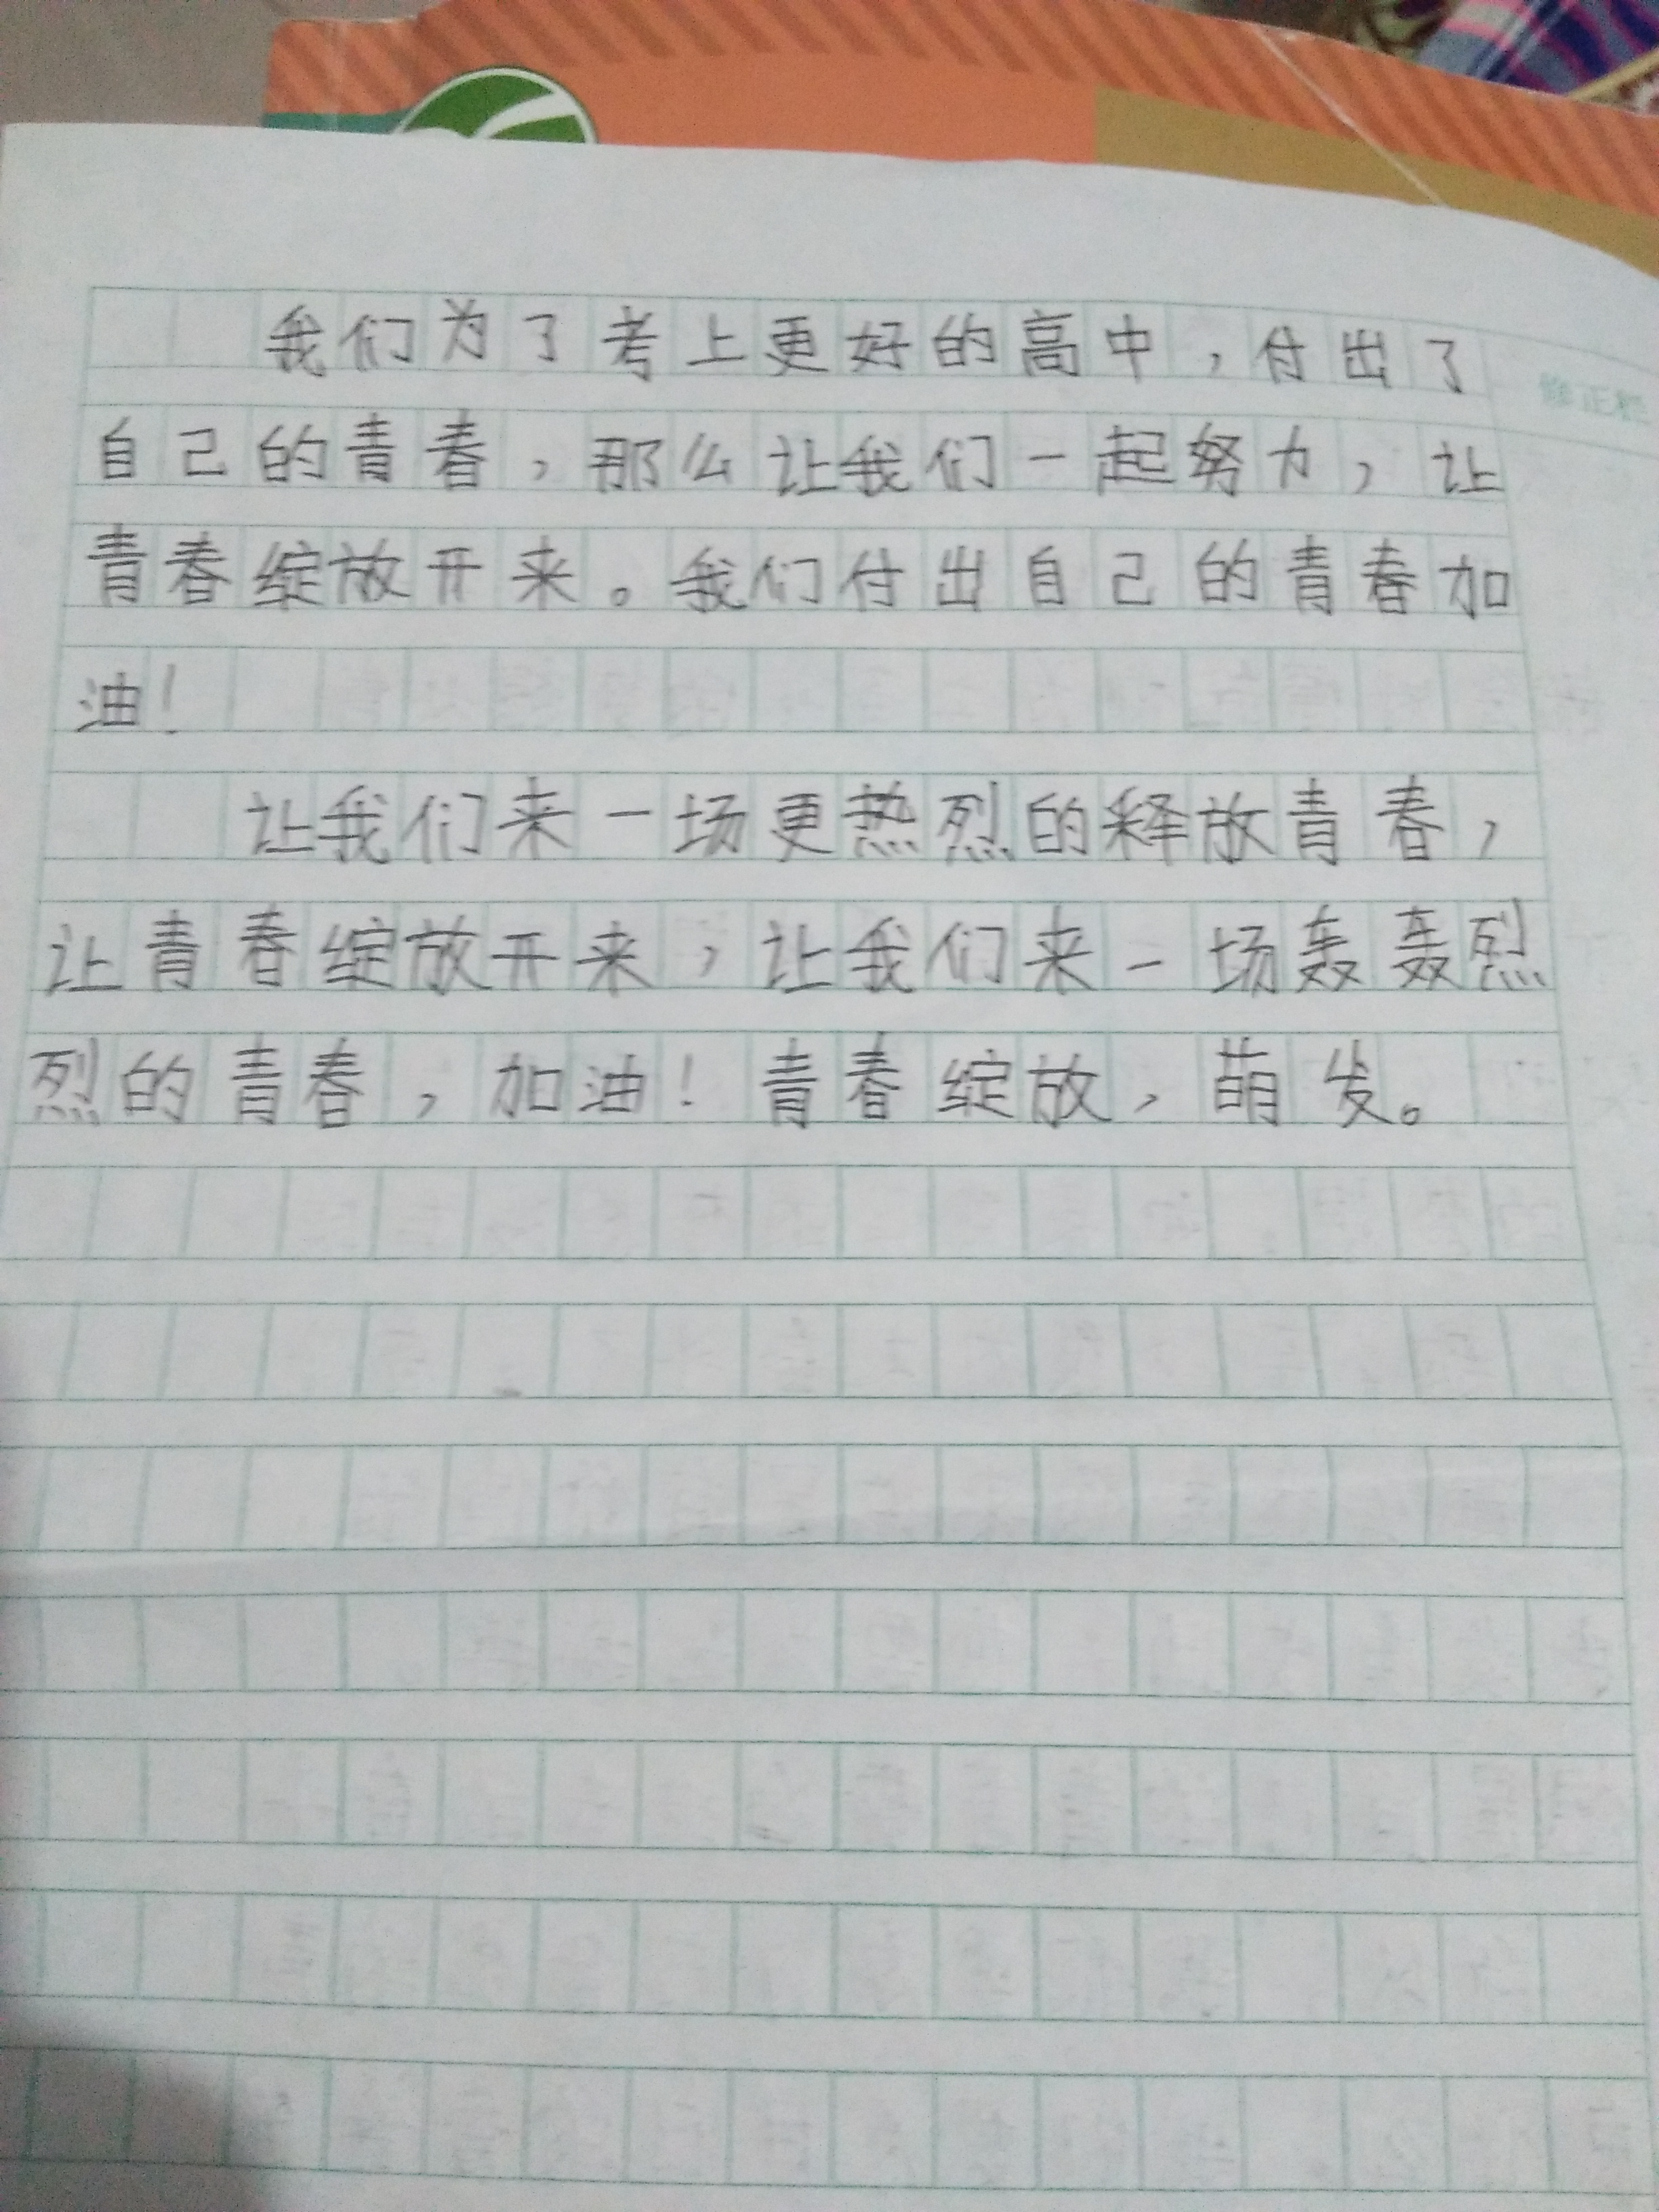 我们为了考上更好的高中，付出了
修正栏
自己的青春，那么让我们一起努力，让
青春绽放开来。我们付出自己的青春加
油！
让我们来一场更热烈的释放青春，
让青春绽放开来，让我们来一场轰轰烈
烈的青春，加油！青春绽放，萌发。